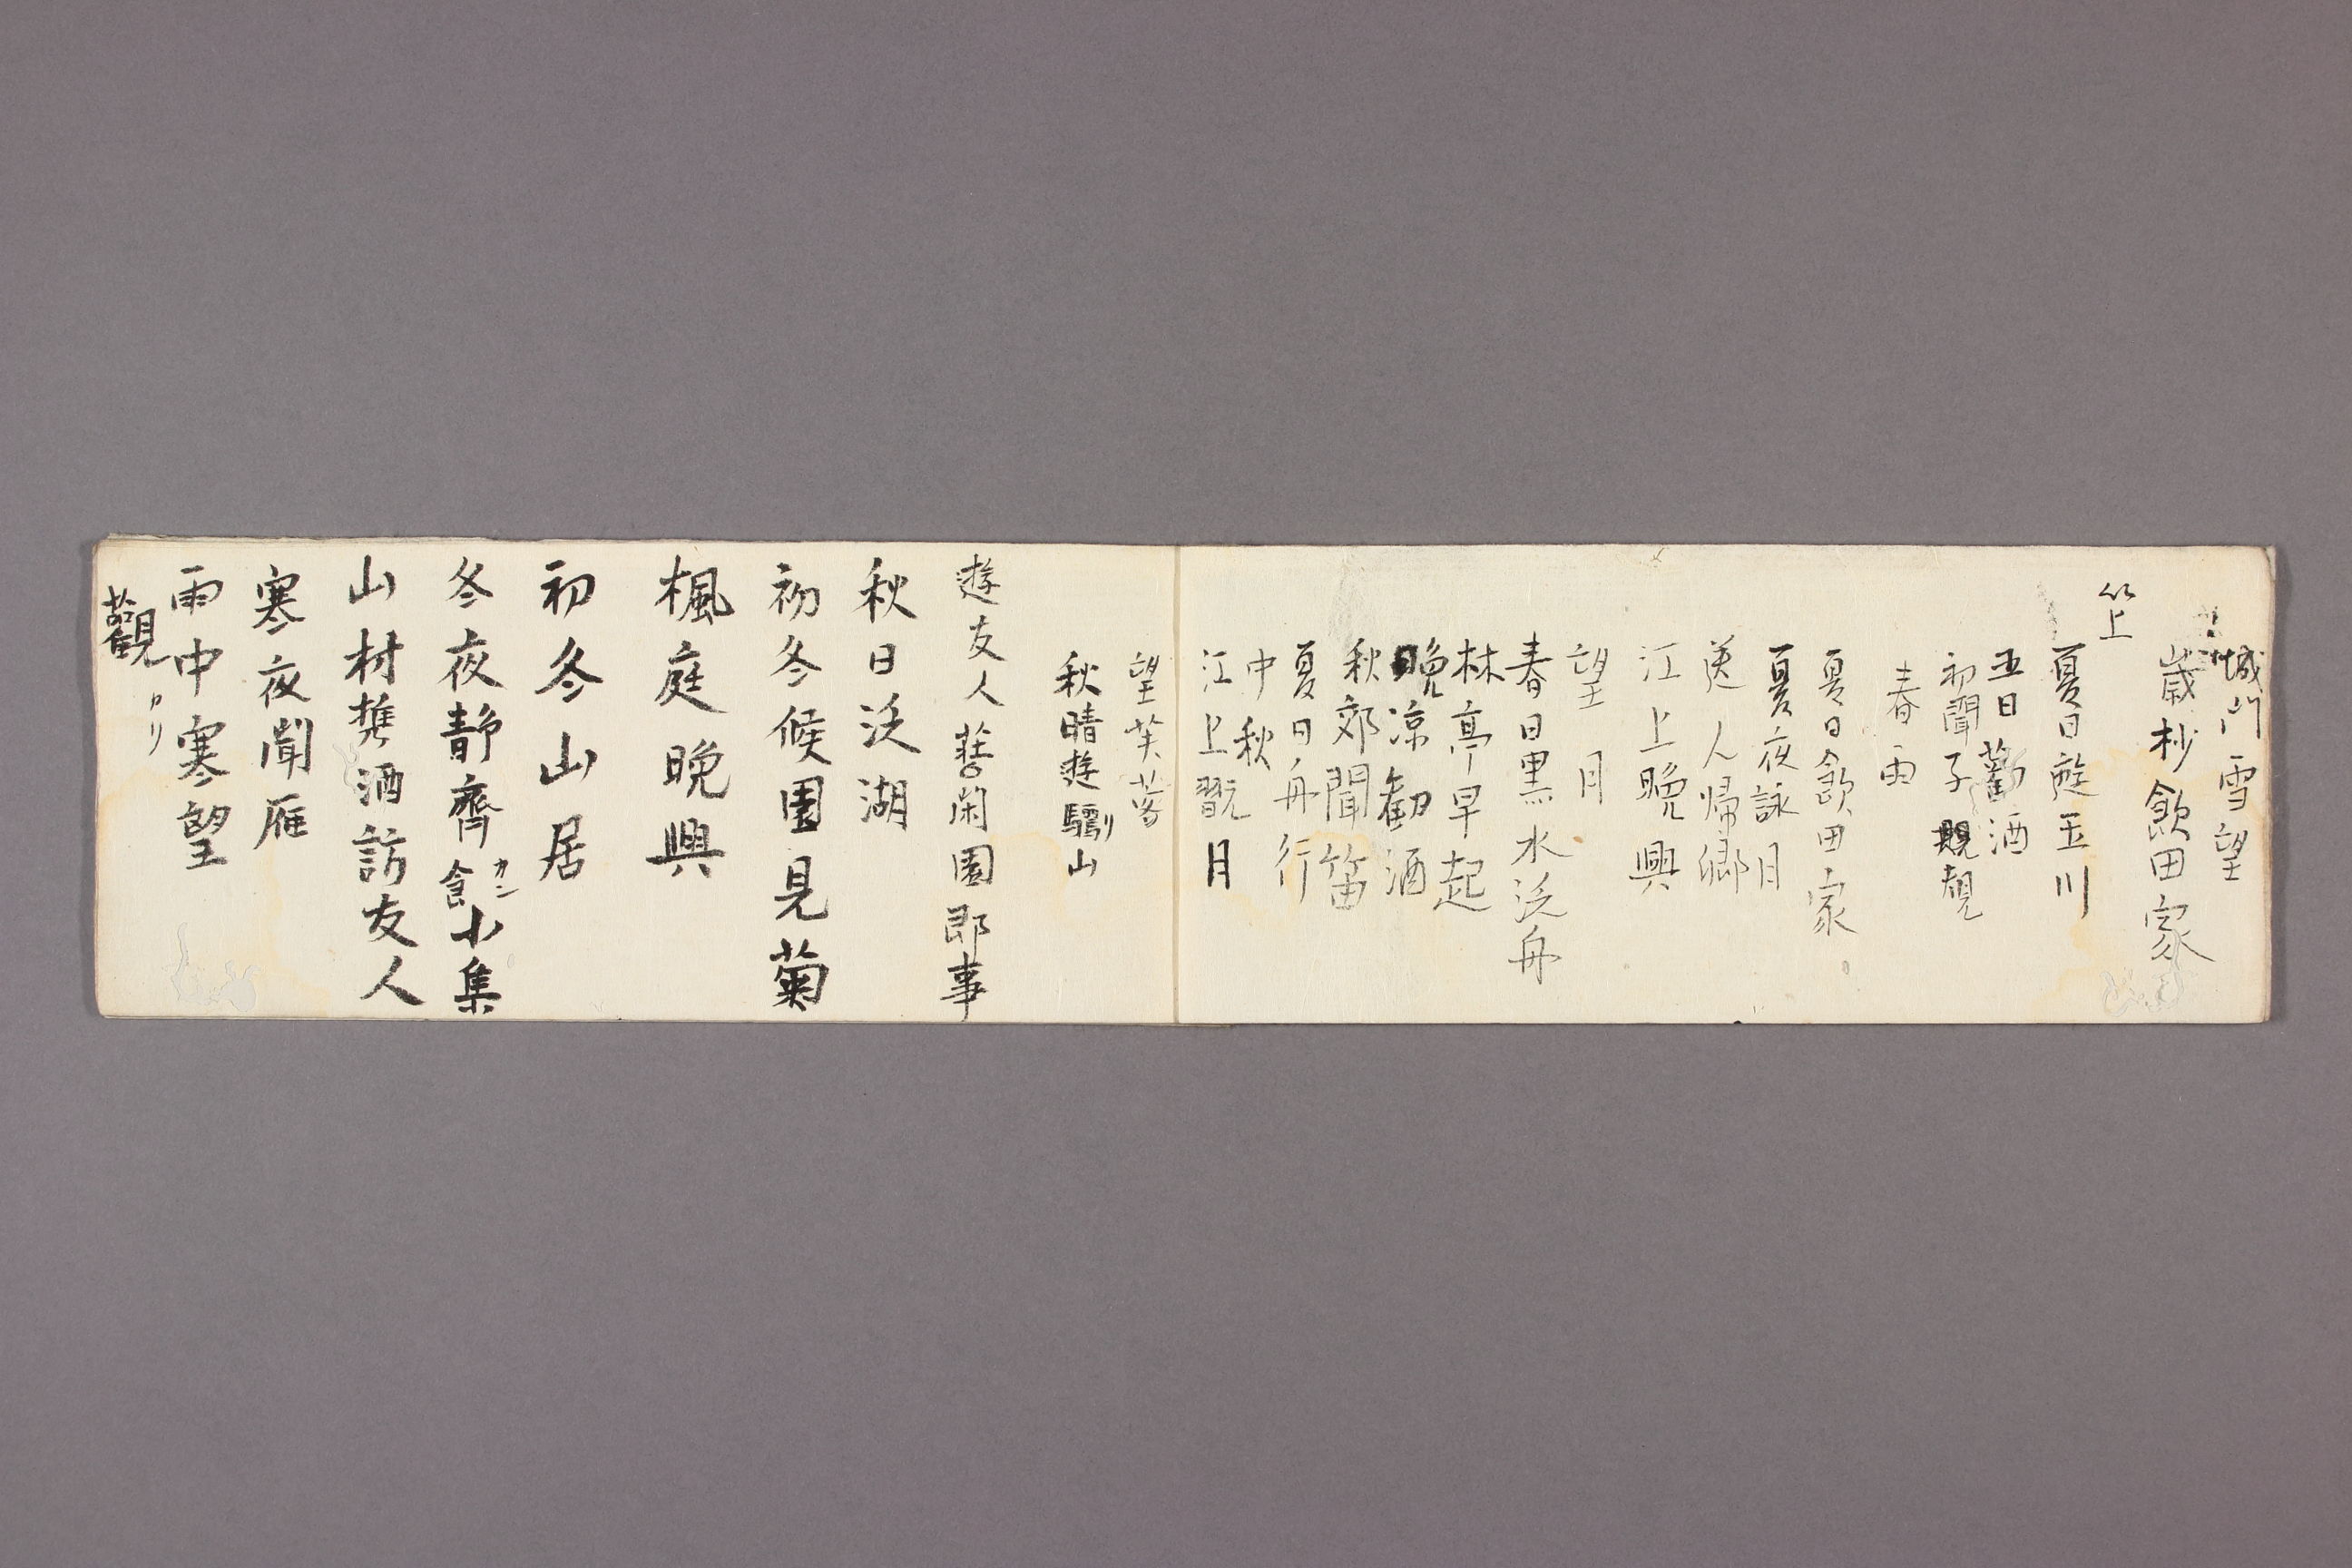 城門雪望
歳杪飲田家
竺
夏日遊玉川
五日勸酒
初聞子規
春雨
夏日飲田家
夏夜詠月
送人帰郷
江上晩興
望月
春日黒水泛舟
林亭早起
晩涼勧酒
秋郊聞笛
夏日舟行
中秋
江上翫月
望芙蓉
秋晴遊驪山
遊友人荘園即事
秋日泛湖
初冬候園見菊
楓庭晩興
初冬山居
冬夜静齊小集
山村携酒訪友人
寒夜聞雁
雨中寒望
觀